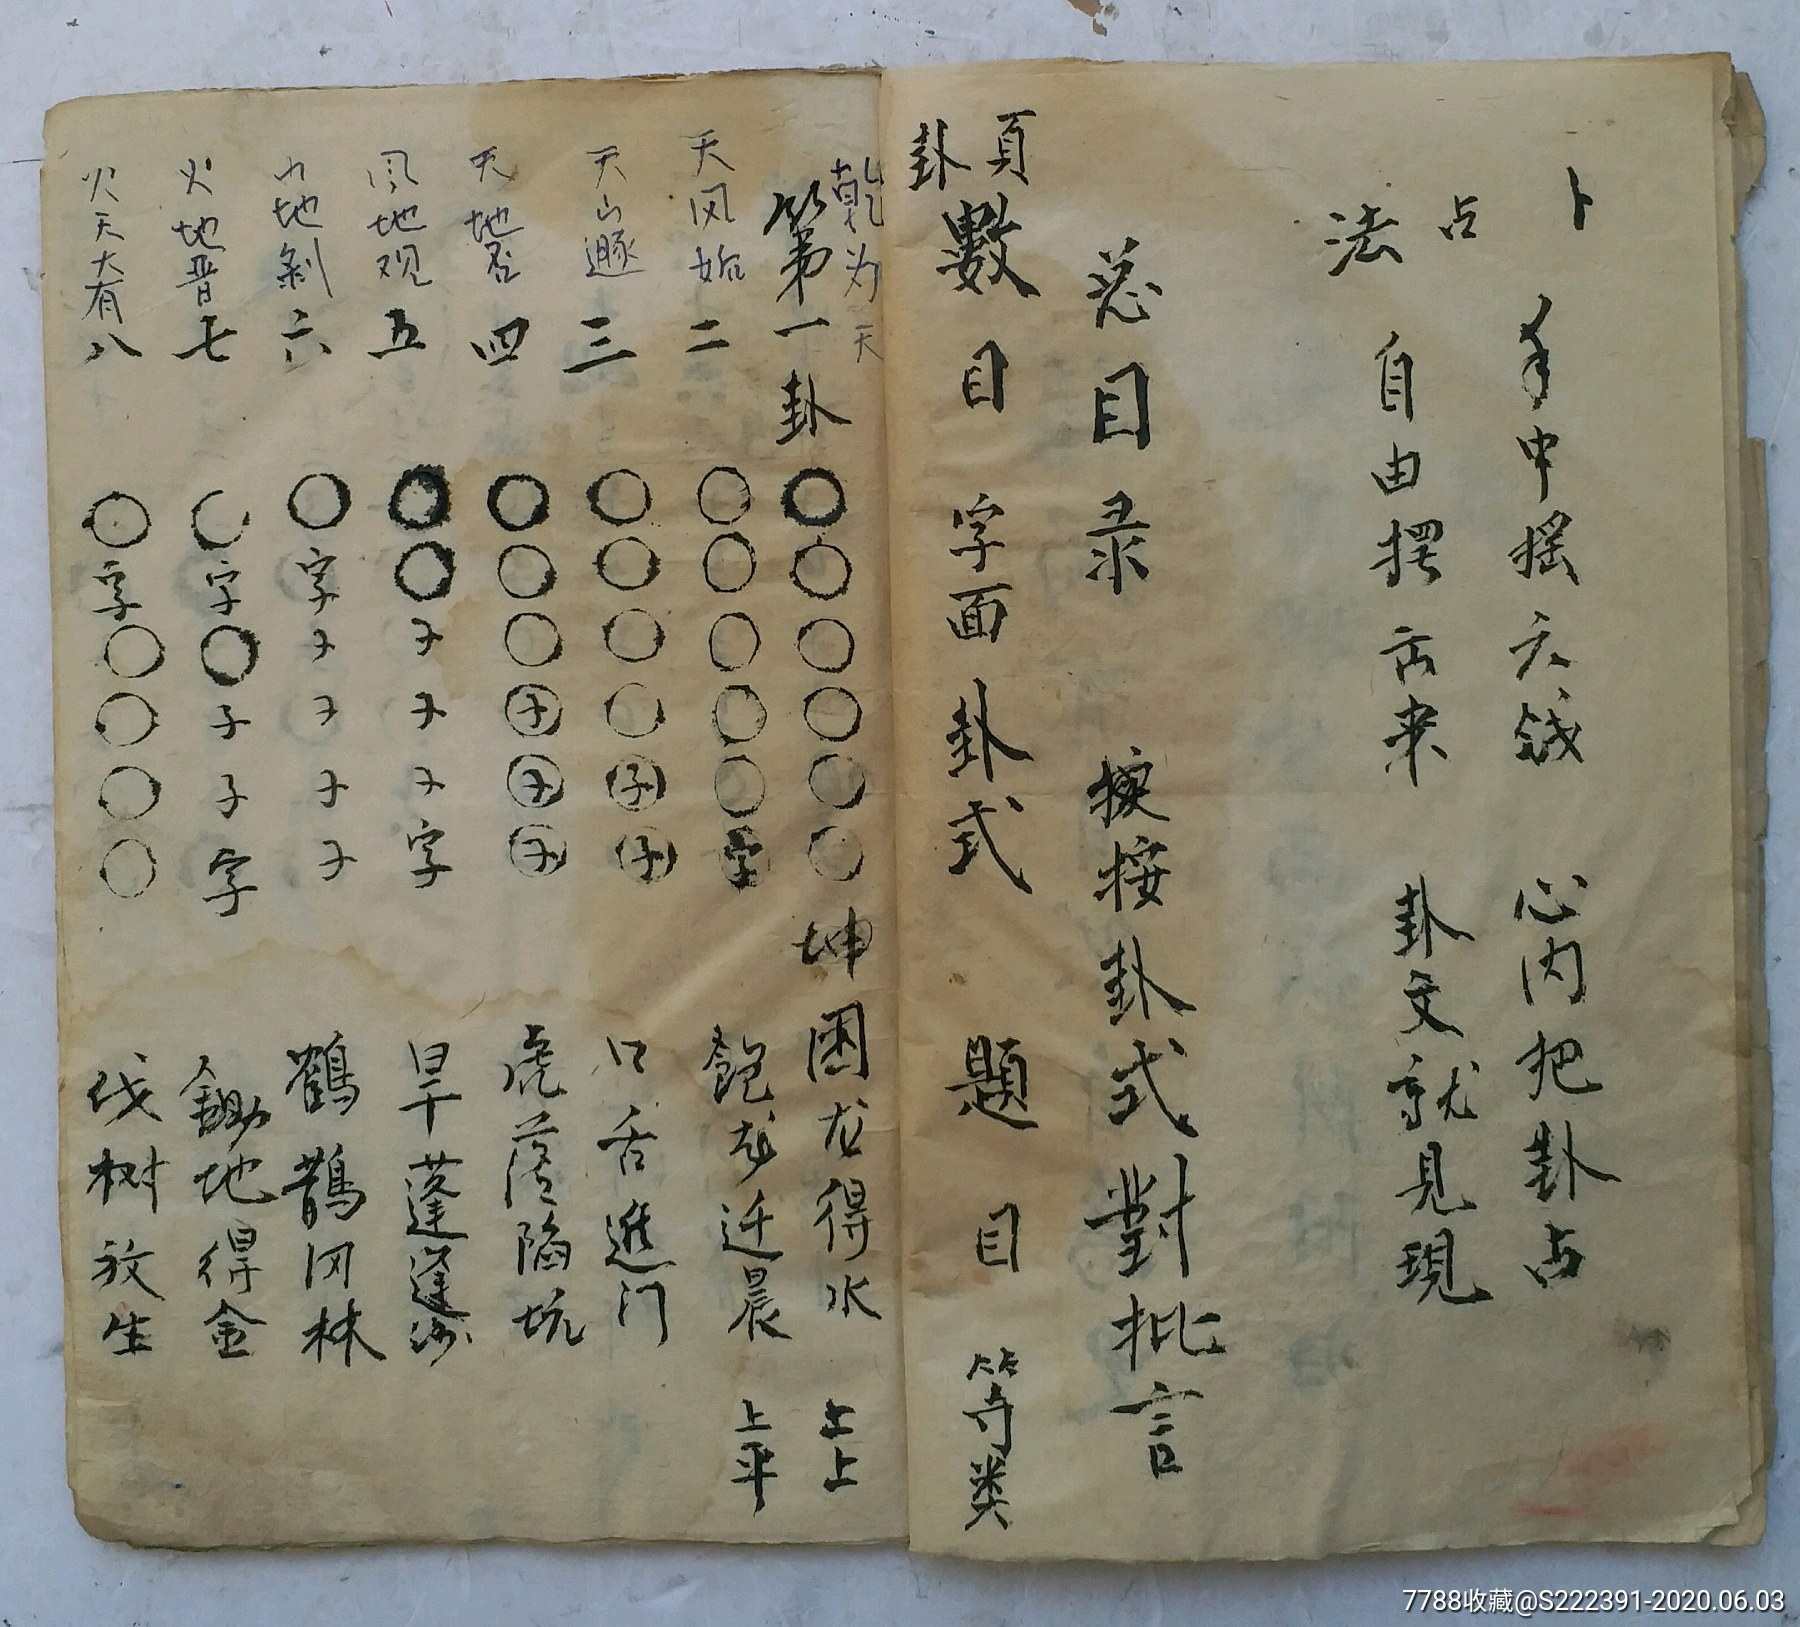 卜占法
手中摇六钱 心内把卦占
自由摆 来 卦文就见現
总目录 按卦式對批言
頁卦數目 字面卦式 題目 等类
乾为天 第一卦 〇〇〇〇〇〇 坤 困龙得水 上上
天风始 二 〇〇〇〇〇字 龙 晨 上平
天山遯 三 〇〇〇〇子子 口舌進门
天地否 四 〇〇〇子子子 虎落陷坑
风地观 五 〇〇子子子字 旱蓬逢
山地剝 六 〇字子子子子 鶴鵲冈林
火地晋七 〇字〇子子字 鋤地得金
火天大有八 〇字〇〇〇〇 伐树放生
7788收藏@S222391-2020.06.03